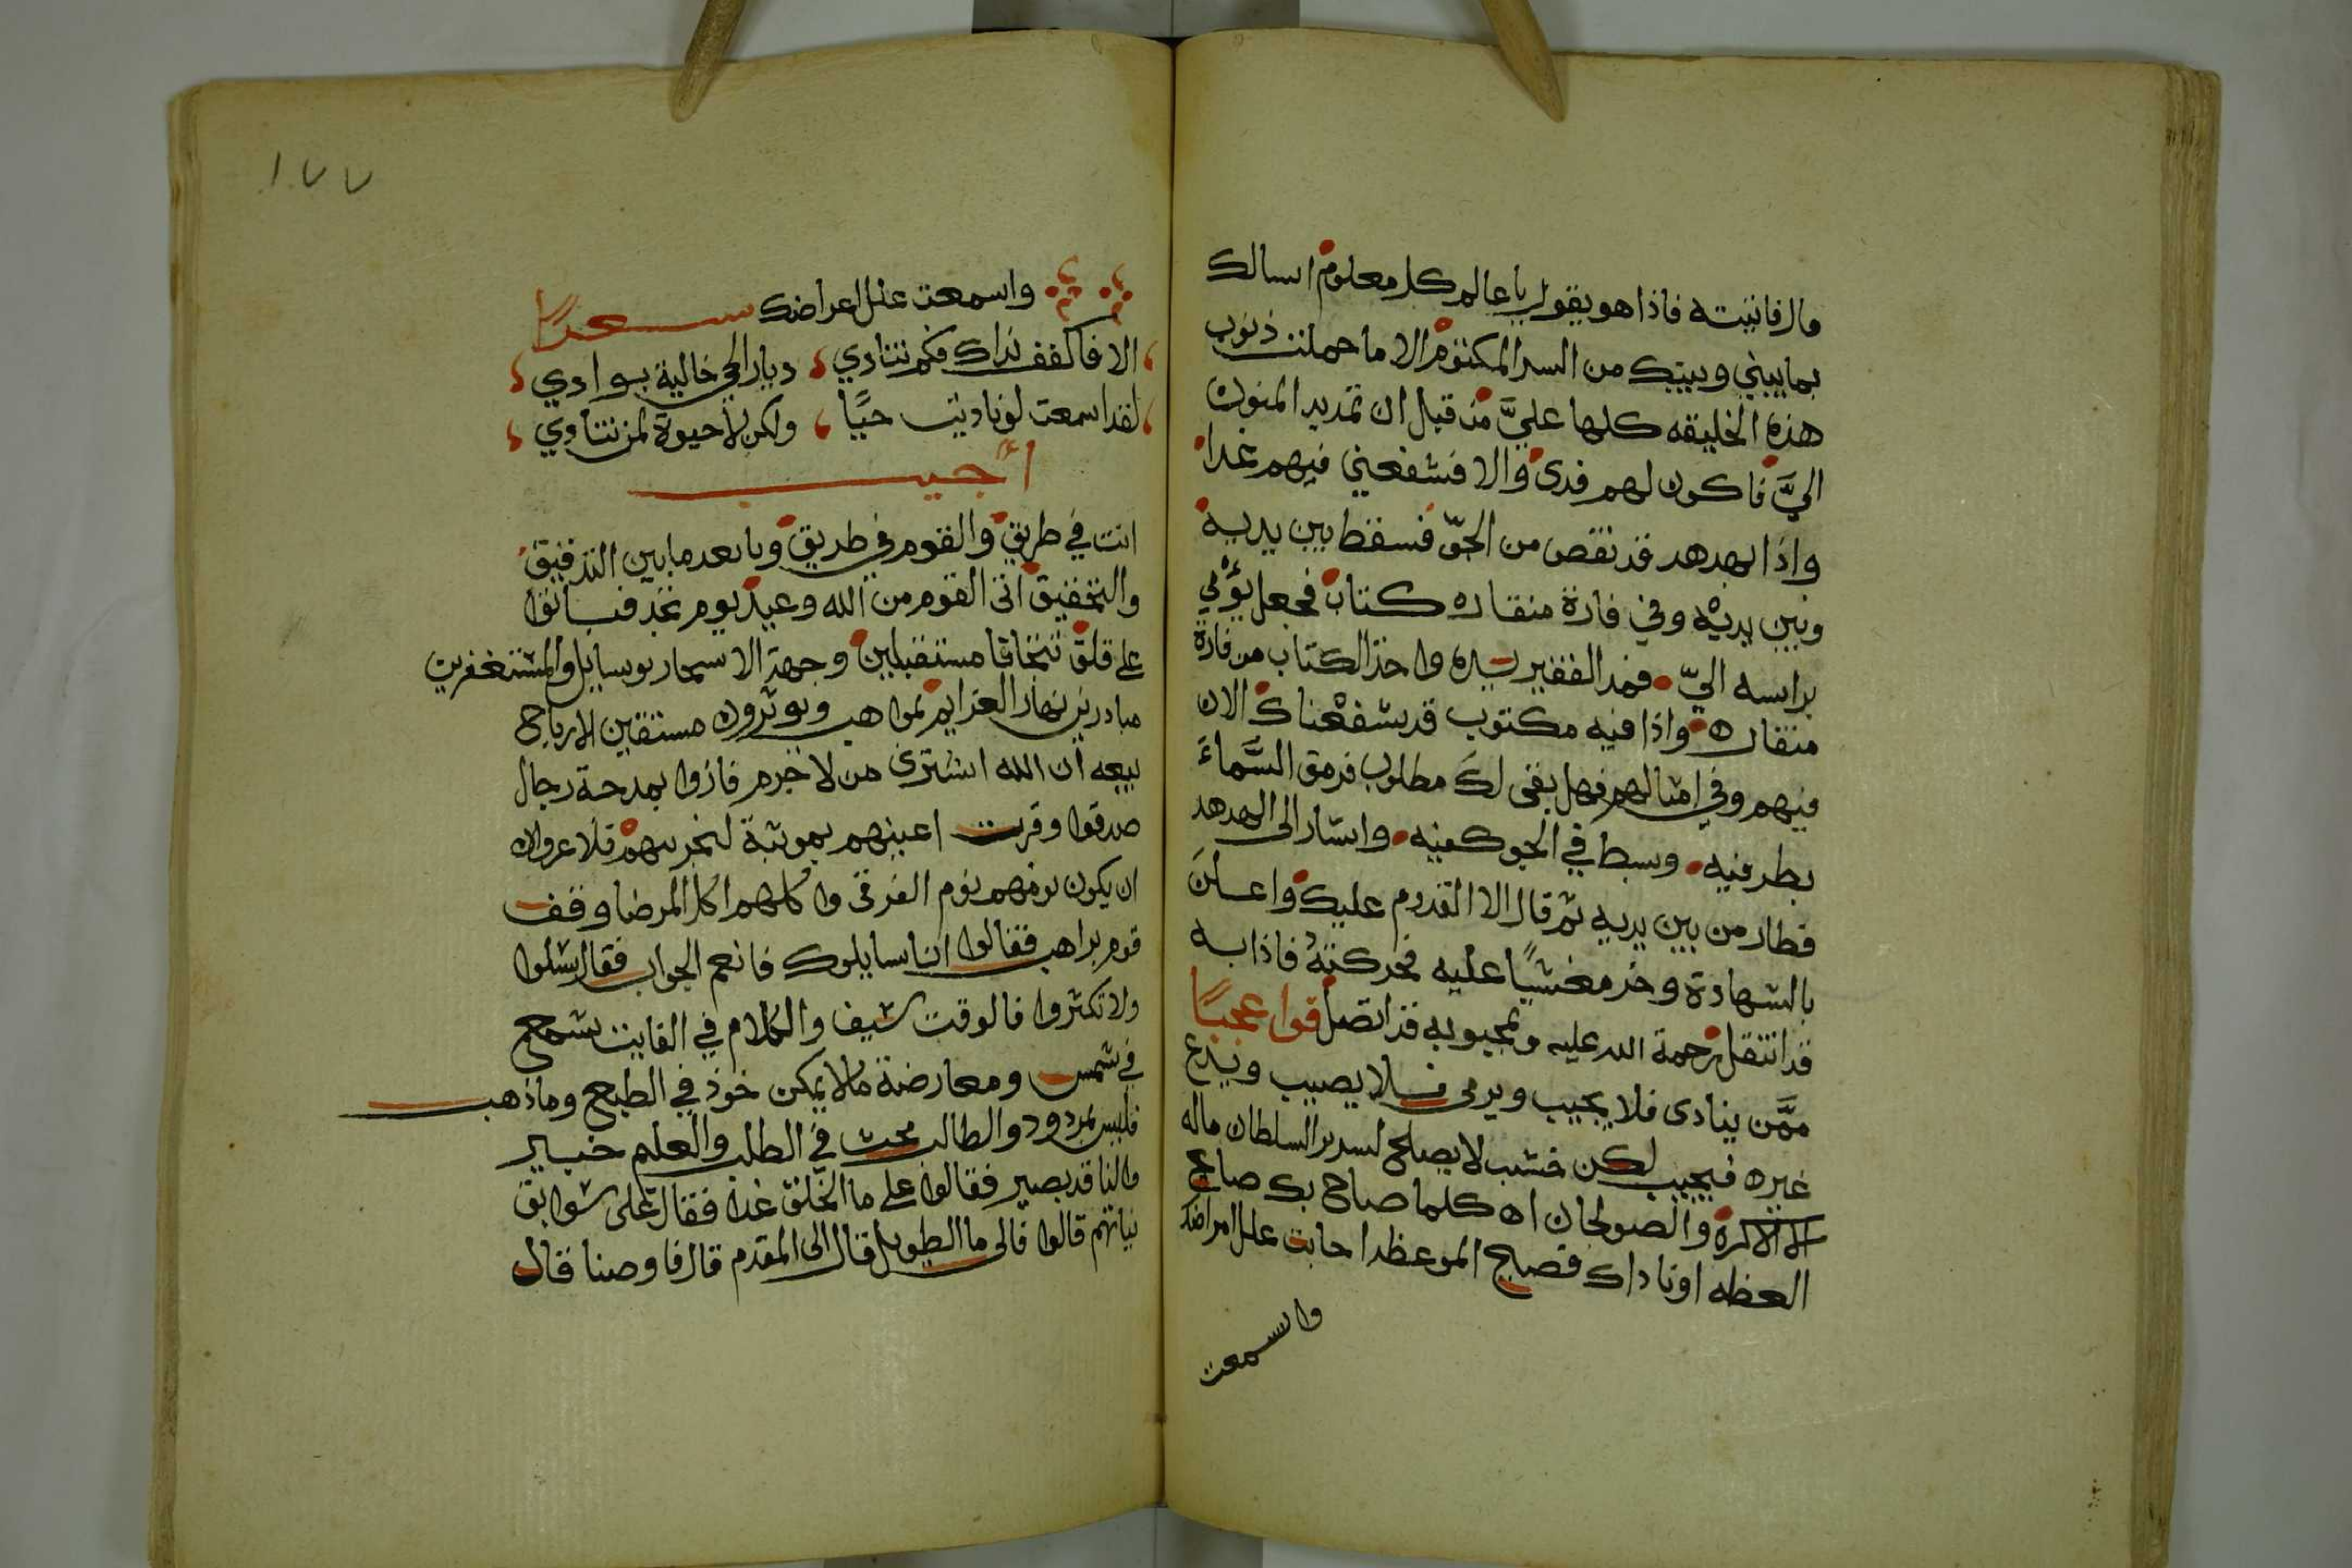 قال فاتيته فاذا هو يقول يا عالم كل معلوم اسالك
بما بيني وبينك من السر المكتوم الا ما حملت ذنوب
هذه الخليقه كلها عليَّ من قبل ان تمديد المنون
اليَّ فاكون لهم فدى والا فشفعني فيهم غدا
واذا الهدهد قد نقض من الجوّ فسقط بين يديه
وبين يديه وفي فارة منقاره كتاب فجعل يؤمي
براسه اليّ فمد الفقير يده واخذ الكتاب من فارة
منقاره واذا فيه مكتوب قد شفعناك الان
فيهم وفي امثالهم فهل بقى لك مطلوب فرمق السَّماءَ
بطرفيه وبسط في الجو كفيه واشار الى الهدهد
فطار من بين يديه ثم قال الا القدوم عليك واعلن
بالشهادة وخر مغشيًا عليه فحركته فاذا به
قد انتقل رحمة الله عليه وبمحبوبه قد اتصل فوا عجبًا
ممَّن ينادى فلا يجيب ويرمى فلا يصيب ويدع
غيره فيجيب لكن خشب لا يصلح لسدير السلطان ماله
الا الاكرة والصولجان اه كلما صباح بك صاح
العظه اوناداك فصيح الموعظه احابت علل امراضك
واسمعت
١٧٧
واسمعت علل اعراضك شعرًا
الا فاكفف نداك فكم تنادي ديار الحي خالية بوادي
لقد اسمعت لو ناديت حيًّا ولكن لا حيوة لمن تنادي
أجيب
انت في طريق والقوم في طريق ويا بعد ما بين التدقيق
والتحقيق اتى القوم من الله وعيد يوم نجد فباتوا
على قلق تتخافا مستقبلين وجهة الاسحار بوسايل والمستغفرين
مبادرين نهار العزايم بمواهب ويوثرون مستقين لارباح
بيعه ان الله اشترى من لا خرم فازوا بمدحة رجال
صدقوا وقرت اعينهم بموثبة لنجزيهم فلا عروان
ان يكون يومهم يوم الفرقى واكلهم اكل المرضا وقف
قوم براهب فقالوا انا سايلوك فانعم الجواب فقال سلوا
ولا تكثروا فالوقت سيف والكلام في الفايت شمع
في شمس ومعارضة ما لا يمكن خوذ في الطبع وما ذهب
فليس بمردود والطالب محث في الطلب والعلم خبير
والناقد بصير فقالوا على ما الخلق غدا فقال على سوابق
نياتهم قالوا فالى ما الطويل قال الى المقدم قال فاوصنا قال